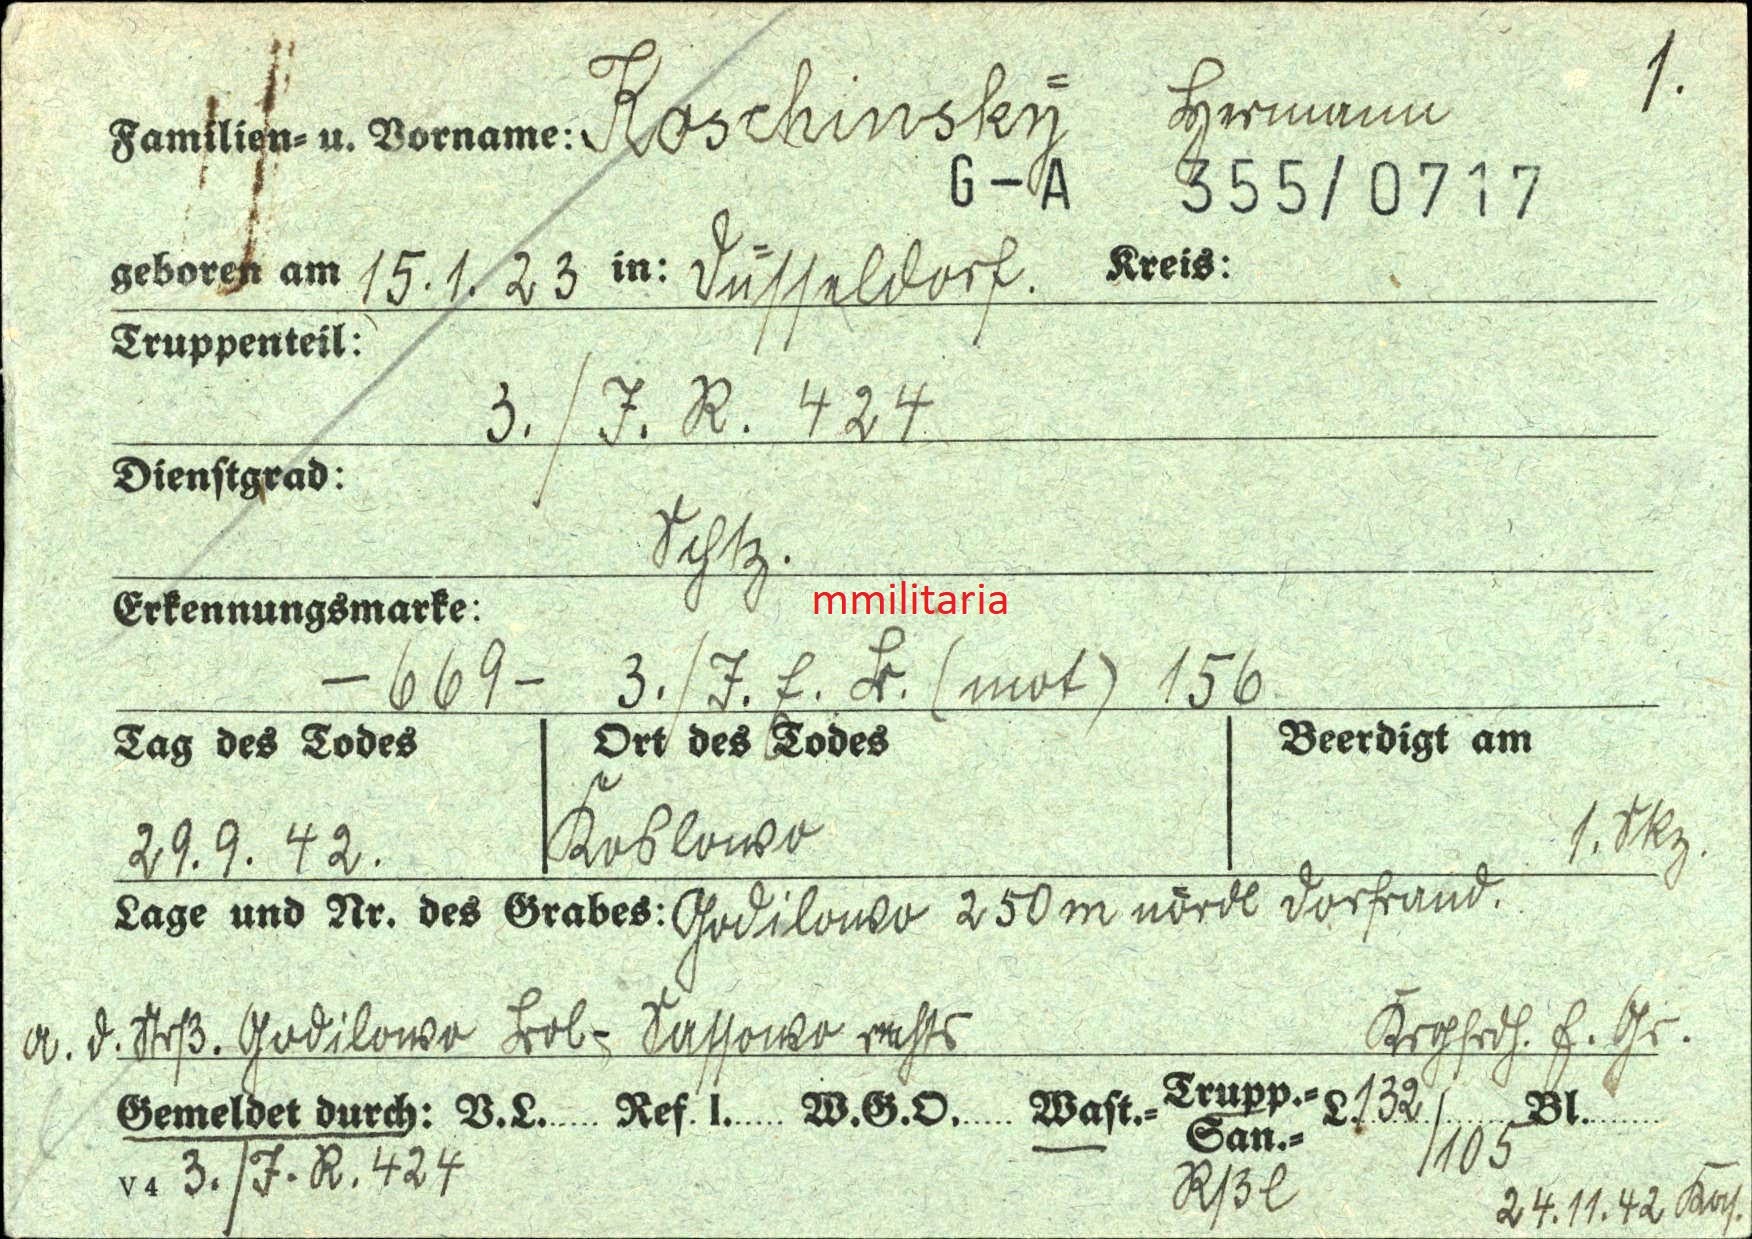 1.
Familien= u. Vorname: Koschinskÿ Hermann
G-A 355/0717
geboren am 15.1.23 in: Düsseldorf. Kreis:
Truppenteil:
3./J. R. 424
Dienstgrad:
Schtz.
Erkennungsmarke:
mmilitaria
-669- 3./J. E. B. (mot) 156
Tag des Todes Ort des Todes Beerdigt am
29.9.42. Koslowo 1. Skz.
Lage und Nr. des Grabes: Godilowo 250 m nördl Dorfrand.
a. d. Strß. Godilowo Bol- Sassowo rechts Krgfrdh. E. Gr.
Gemeldet durch: V.L. Ref. I. W.G.O. Wast.= Trupp.= San.= L. 132/105 Bl.
V 4 3./J. R. 424
24.11.42